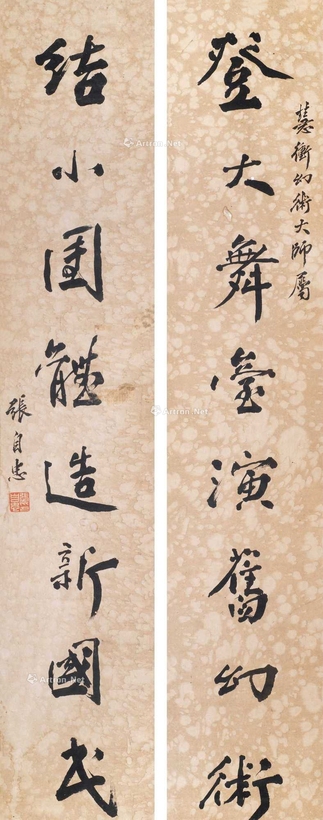 慧衝幻術大師屬
登大舞臺演舊幻術
結小團體造新國民
張自忠
Artron.Net
Artron.Net
Artron.Net
Artron.Net
Artron.Net